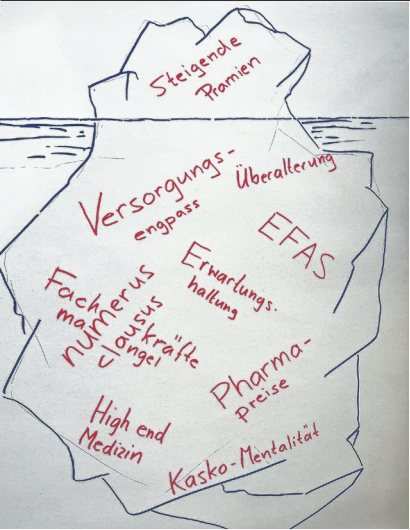 Steigende
Prämien
Versorgungs-
engpass
Überalterung
EFAS
Erwartungs.
haltung
Fachkräfte
mangel
numerus
clausus
Pharma-
preise
High end
Medizin
Kasko-Mentalität